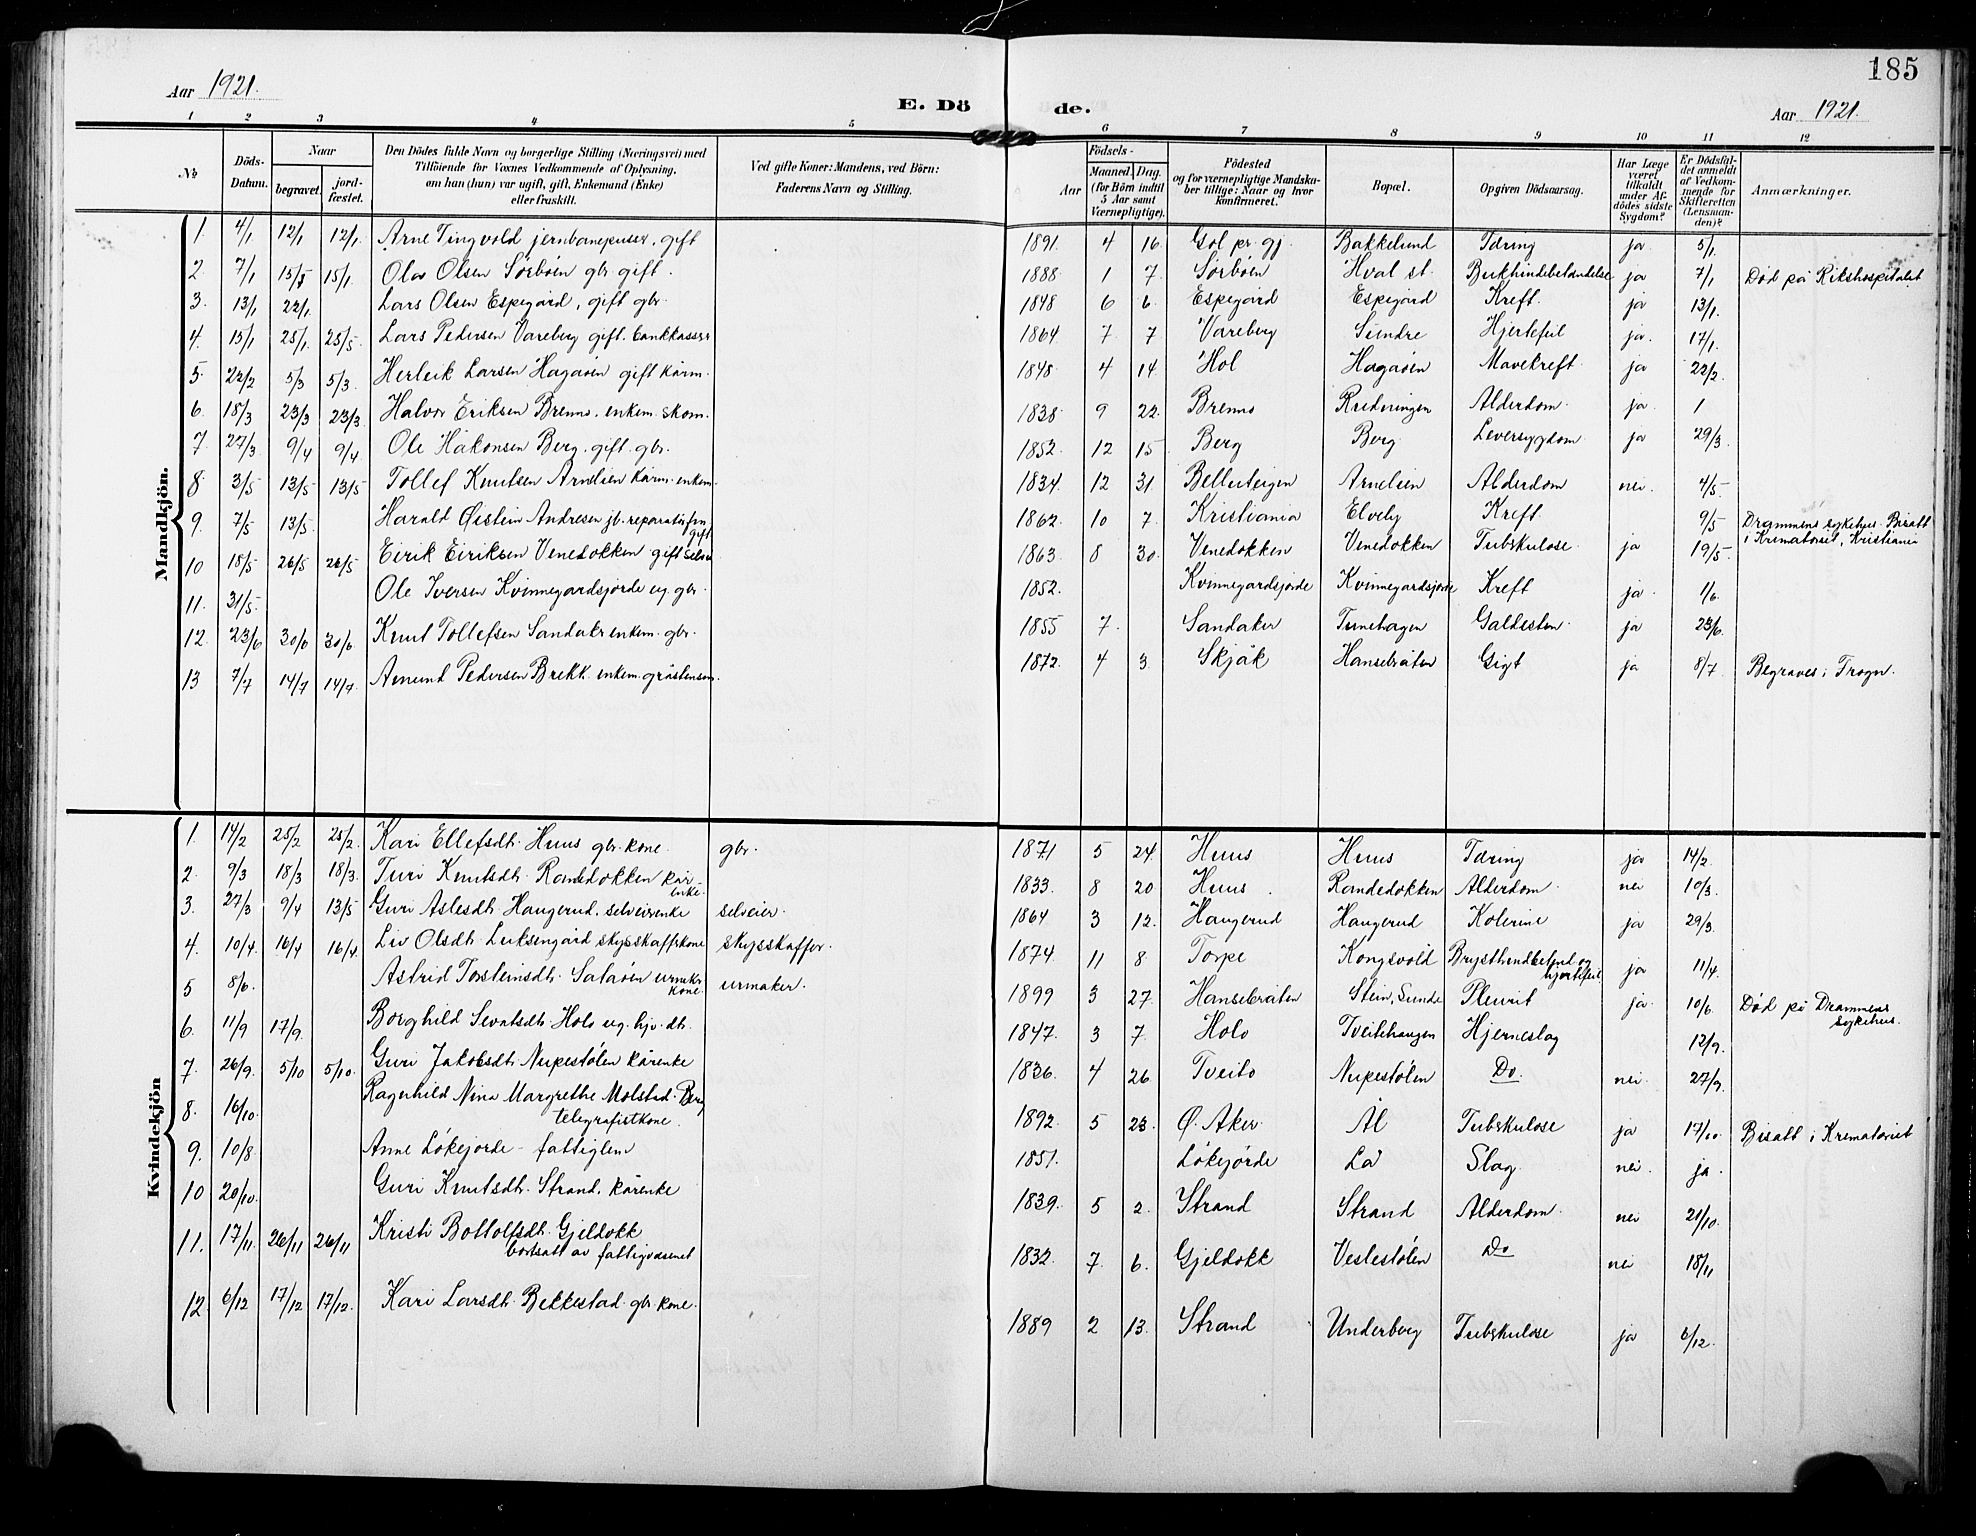 185
Aar 1921.
E. Döde.
Aar 1921.
1 2 3 4 5 6 7 8 9 10 11 12
No
Döds-Datum.
Naar
begravet.
jord-fæstet.
Den Dödes fulde Navn og borgerlige Stilling (Næringsvei) med
Tilföiende for Voxnes Vedkommende af Oplysning,
om han (hun) var ugift, gift, Enkemand (Enke)
eller fraskilt.
Ved gifte Koner: Mandens, ved Börn:
Faderens Navn og Stilling.
Födsels-
Aar
Maaned. Dag.
(for Börn indtil
5 Aar samt
Værnepligtige).
Födested
og for værnepligtige Mandska-
ber tillige: Naar og hvor
konfirmeret.
Bopæl.
Opgiven Dödsaarsag.
Har Læge
været
tilkaldt
under Af-
dödes sidste
Sygdom?
Er Dödsfal-
det anmeldt
af Vedkom-
mende for
Skifteretten
(Lensman-
den)?
Anmærkninger.
Mandkjön.
1. 4/1 12/1 12/1 Arne Tingvold jernbanepuser, gift 1891. 4 16. Gol pr. gj. Bakkelund Tæring ja. 5/1.
2. 7/1 15/1 15/1. Olav Olsen Sörböen gbr. gift. 1888. 1 7. Sörböen Hval st. Bukhindebetændelse ja 7/1 Död på Rikshospitalet
3. 13/1 22/1. Lars Olsen Espegård, gift gbr. 1848 6 6. Espegård Espegård Kreft. ja 13/1.
4. 15/1 25/1. 28/5. Lars Pedersen Vareberg gift. bankkasser 1864 7. 7 Vareberg Sundre Hjertefeil ja. 17/1.
5. 22/2 5/3 5/3. Herleik Larsen Hagaöen gift kårm. 1848 4 14 Hol Hagaöen Mavekreft. ja 22/2.
6. 18/3 23/3 23/3 Halvor Eriksen Brenno. enkem. skom. 1838. 9 22. Brenno Rredningen Alderdom. ja. 1
7. 27/3 9/4 9/4 Ole Håkonsen Berg. gift. gbr. 1852. 12 15. Berg Berg Leversygdom. ja 29/3.
8. 3/5 13/5 13/5 Tollef Knutsen Arnelien kårm. enkem. 1834. 12 31. Belleuteigen Arnelien Alderdom nei. 4/5.
9. 7/5 13/5. Harald Øistein Andresen jb. reparatörfm gift 1862. 10 7. Kristiania Elvely Kreft. 9/5 Drammens sykehus. Bisatt
i Krematoriet, Kristiania
10 18/5 26/5 26/5 Eirik Eiriksen Venedokken gift selv. 1863. 8 30. Venedokken Venedokken Tubskulose. ja 19/5.
11. 31/5. Ole Iversen Kvinnegardsjorde ug. gbr. 1852. Kvinnegardsjorde Kvinnegardsjorde Kreft ja. 1/6.
12. 23/6 30/6 30/6 Knut Tollefsen Sandaker enkem. gbr. 1855 7. Sandaker Tunehagen Galdesten. ja 23/6.
13 7/7 14/7 14/7. Amund Pedersen Brekk. enkem. 1872. 4 3. Skjåk Hansebråten Gigt ja 8/7 Begraves i Trogn.
Kvindekjön
1. 14/2 25/2 25/2. Kari Ellefsdt. Huus gbr. kone. gbr. 1871 5 24. Huus Huus Tæring ja 14/2.
2. 9/3 18/3 18/3. Turi Knutsdt. Randedokken kår-
enke. 1833. 8 20 Huus. Randedokken Alderdom. nei 10/3.
3. 27/3 9/4 13/5 Guri Aslesdt. Haugerud. selveierenke selveier. 1864 3 12. Haugerud Haugerud Kolerine ja 29/3.
4. 10/4. 16/4 16/4. Liv Olsdt. Luksengård skysskaffkone skysskaffer. 1874. 11 8 Torpe Kongsvold Brysthindebetend og
hjertefeil ja 11/4.
5 8/6. Astrid Torsteinsdt. Sataöen urmaker
kone. urmaker. 1899 3 27. Hansebråten Stein, Sunde Pleurit ja. 10/6. Död på Drammens
sykehus.
6. 11/9 17/9. Borghild Sevatsdt. Holo ug. hjv. dt. 1847. 3 7. Holo Tveitehaugen Hjerneslag 12/9.
7. 26/9. 5/10 5/10. Guri Jakobsdt. Nupestölen kårenke 1836. 4 26 Tveito Nupestölen Do. nei. 27/9.
8. 16/10. Ragnhild Nina Margrethe Molstad-Berg
telegrafistkone. 1892. 5 23. Ø. Aker. Ål Tubskulose ja 17/10. Bisatt i Krematoriet
9. 10/8 Anne Lökejorde – fattiglem 1851. Lökejörde Lä Slag. nei. ja.
10 20/10. Guri Knutsdt. Strand, kårenke 1839. 5 2. Strand Strand Alderdom. nei 21/10.
11. 17/11. 26/11 26/11 Kristi Bottolfsdt. Gjeldokk
bortsatt av fattigvæsenet 1832. 7. 6. Gjeldokk Vestestölen Do nei 18/11
12 6/12 17/12 17/12. Kari Larsdt. Bekkestad. gbr. kone. 1889 2 13. Strand Underberg Tubskulose ja 6/12.